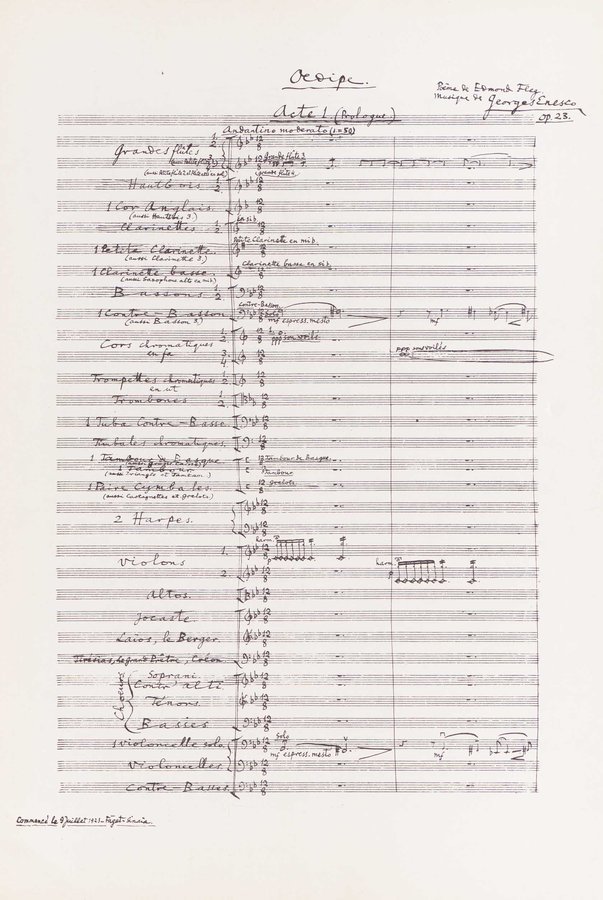 Oedipe.
Poème de Edmond Fleg
Musique de Georges Enesco
op. 23.
Acte 1. (Prologue)
Andantino moderato (♩.=50)
Grandes flûtes 1. 2.
Grande flûte 3
Grande flûte 4
Hautbois 1. 2.
1 Cor Anglais.
(aussi Hautbois 3.)
Clarinettes 1. 2.
en sib
1 Petite Clarinette.
(aussi Clarinette 3.)
Petite Clarinette en mib.
1 Clarinette basse.
(aussi Saxophone alto en mib)
Clarinette basse en sib.
Bassons 1. 2.
1 Contre-Basson
(aussi Basson 3.)
Contre-Basson
Solo
mf espress. mesto
mf
Cors chromatiques
en fa
1. 2. 3. 4.
ppp sons voilés
ppp sons voilés
Trompettes chromatiques
en ut
1. 2.
Trombones 1. 2.
1 Tuba Contre-Basse.
Timbales chromatiques.
1 Tambour de Basque
Tambour de Basque
1 Tambour
(aussi Triangle et Tamtam)
Tambour
1 Paire Cymbales.
(aussi Castagnettes et grelots)
Grelots
2 Harpes.
Violons 1. 2.
harm.
harm.
Altos.
Jocaste.
Laïos, le Berger.
Tirésias, le Grand Prêtre, Créon.
Choeurs
Soprani
Contr'alti
Ténors
Basses
1 Violoncelle solo
Solo
mf espress. mesto
mf
Violoncelles.
Contre-Basses
Commencé le 9 Juillet 1921